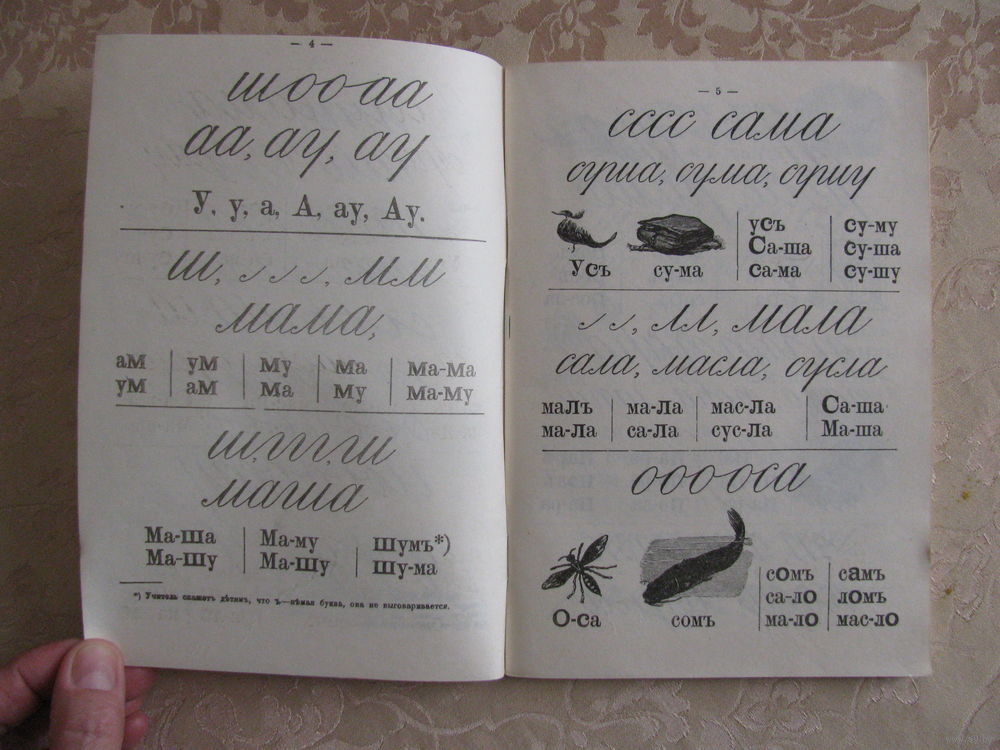 — 4 —
ш о о аа
аа, ау, ау
У, у, а, А, ау, Ау.
мм
мама,
ам ум му ма ма-ма
ум ам ма му ма-му
маша
Ма-ша Ма-му Шумъ*)
Ма-шу Ма-шу Шу-ма
*) Учитель скажетъ дѣтямъ, что ъ—нѣмая буква, она не выговаривается.
— 5 —
сссс сама
суша, сума, сушу
усъ су-му
Са-ша су-ша
Усъ су-ма са-ма су-шу
лл, мала
сала, масла, сусла
малъ ма-ла мас-ла Са-ша
ма-ла са-ла сус-ла Ма-ша
оооо оса
сомъ самъ
са-ло ломъ
О-са сомъ ма-ло мас-ло